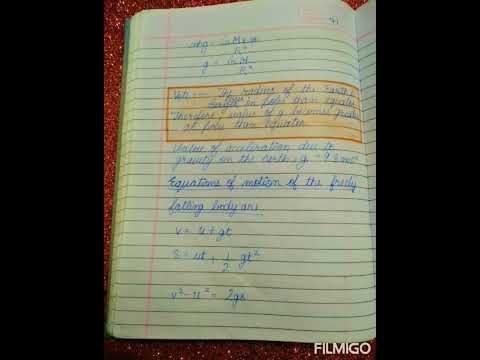 71
mg = GMm
R²
g = GM
R²
Note :- The radius of the earth
is less in poles than equator
Therefore, value of g becomes greater
at poles than equator
Value of acceleration due to
gravity on the earth, g = 9.8 ms⁻²
Equations of motion of the freely
falling body are
v = u + gt
s = ut + 1/2 gt²
v² - u² = 2gs
FILMIGO